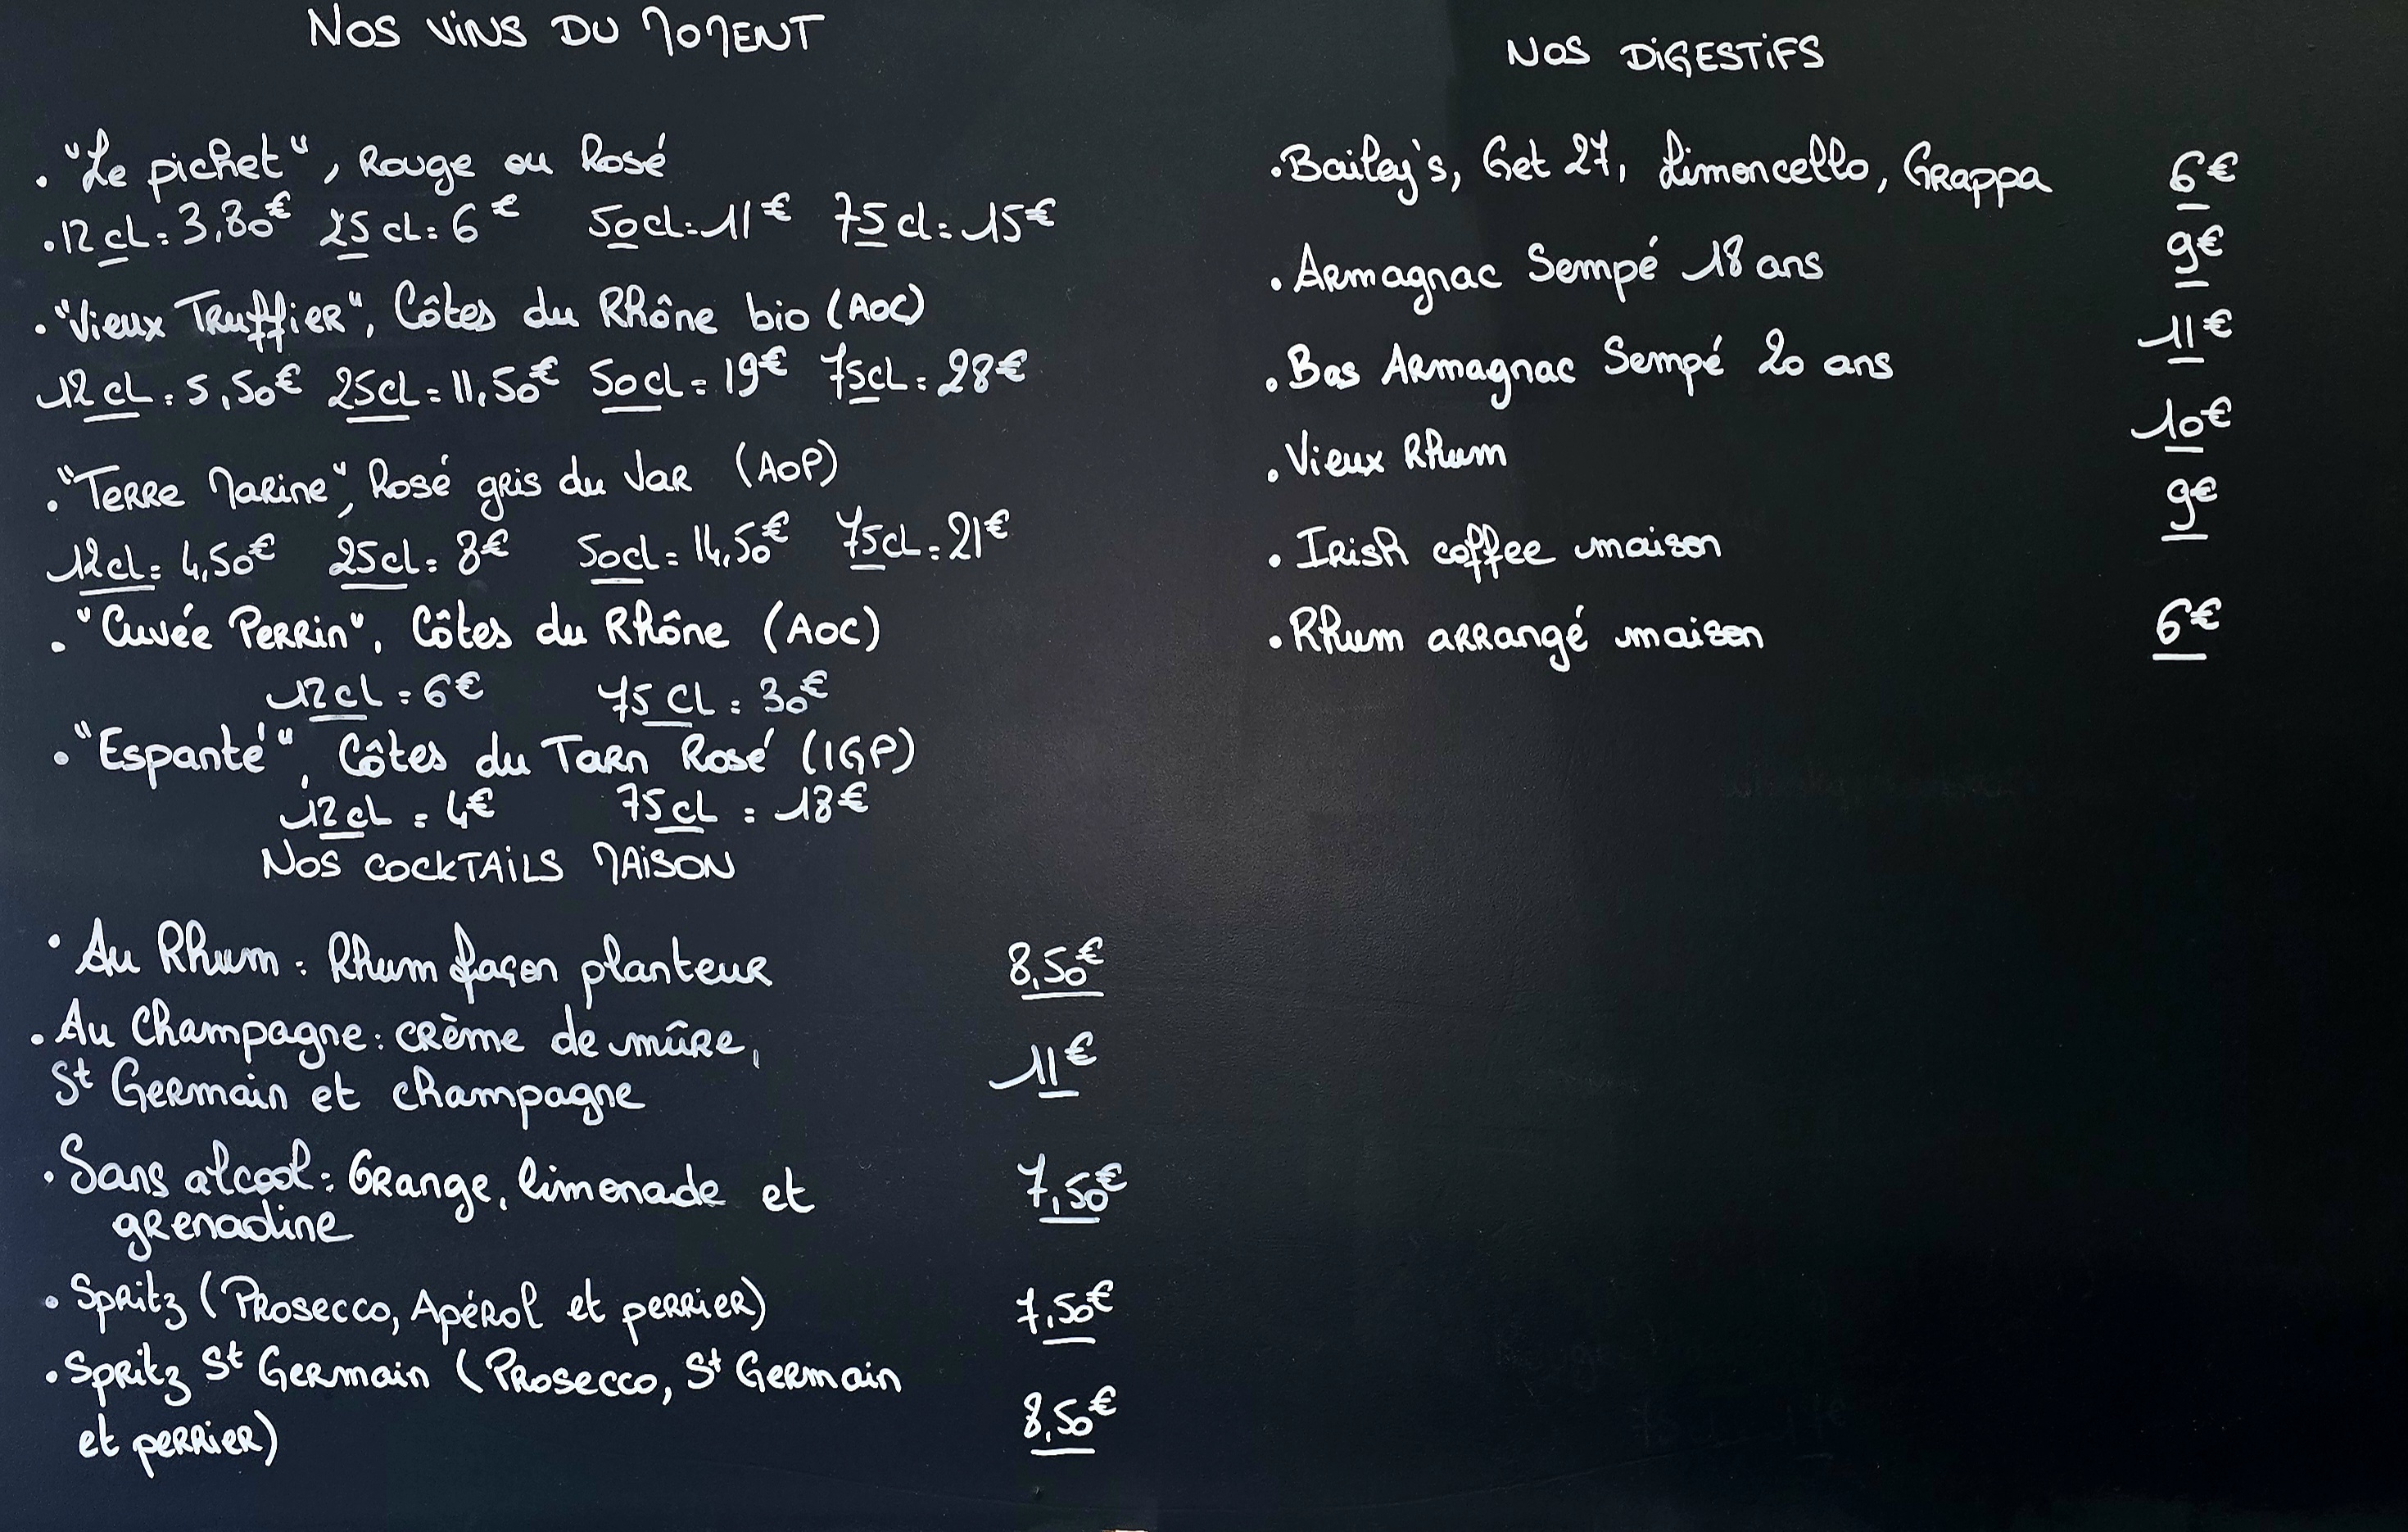 NOS VINS DU MOMENT
. "Le pichet", Rouge ou Rosé
. 12 cl = 3,80€ 25 cl = 6€ 50 cl = 11€ 75 cl = 15€
. "Vieux Truffier", Côtes du Rhône bio (AOC)
12 cl = 5,50€ 25cl = 11,50€ 50cl = 19€ 75cl = 28€
. "Terre Marine", Rosé gris du Var (AOP)
12cl = 4,50€ 25cl = 8€ 50cl = 14,50€ 75cl = 21€
. "Cuvée Perrin", Côtes du Rhône (AOC)
12cl = 6€ 75 cl = 30€
. "Espanté", Côtes du Tarn Rosé (IGP)
12 cl = 4€ 75 cl = 18€
NOS COCKTAILS MAISON
. Au Rhum : Rhum façon planteur 8,50€
. Au Champagne : crème de mûre,
St Germain et champagne 11€
. Sans alcool : Orange, limonade et 7,50€
grenadine
. Spritz (Prosecco, Apérol et perrier) 7,50€
. Spritz St Germain (Prosecco, St Germain
et perrier) 8,50€
NOS DIGESTIFS
. Bailey's, Get 27, Limoncello, Grappa 6€
. Armagnac Sempé 18 ans 9€
. Bas Armagnac Sempé 20 ans 11€
. Vieux Rhum 10€
. Irish coffee maison 9€
. Rhum arrangé maison 6€